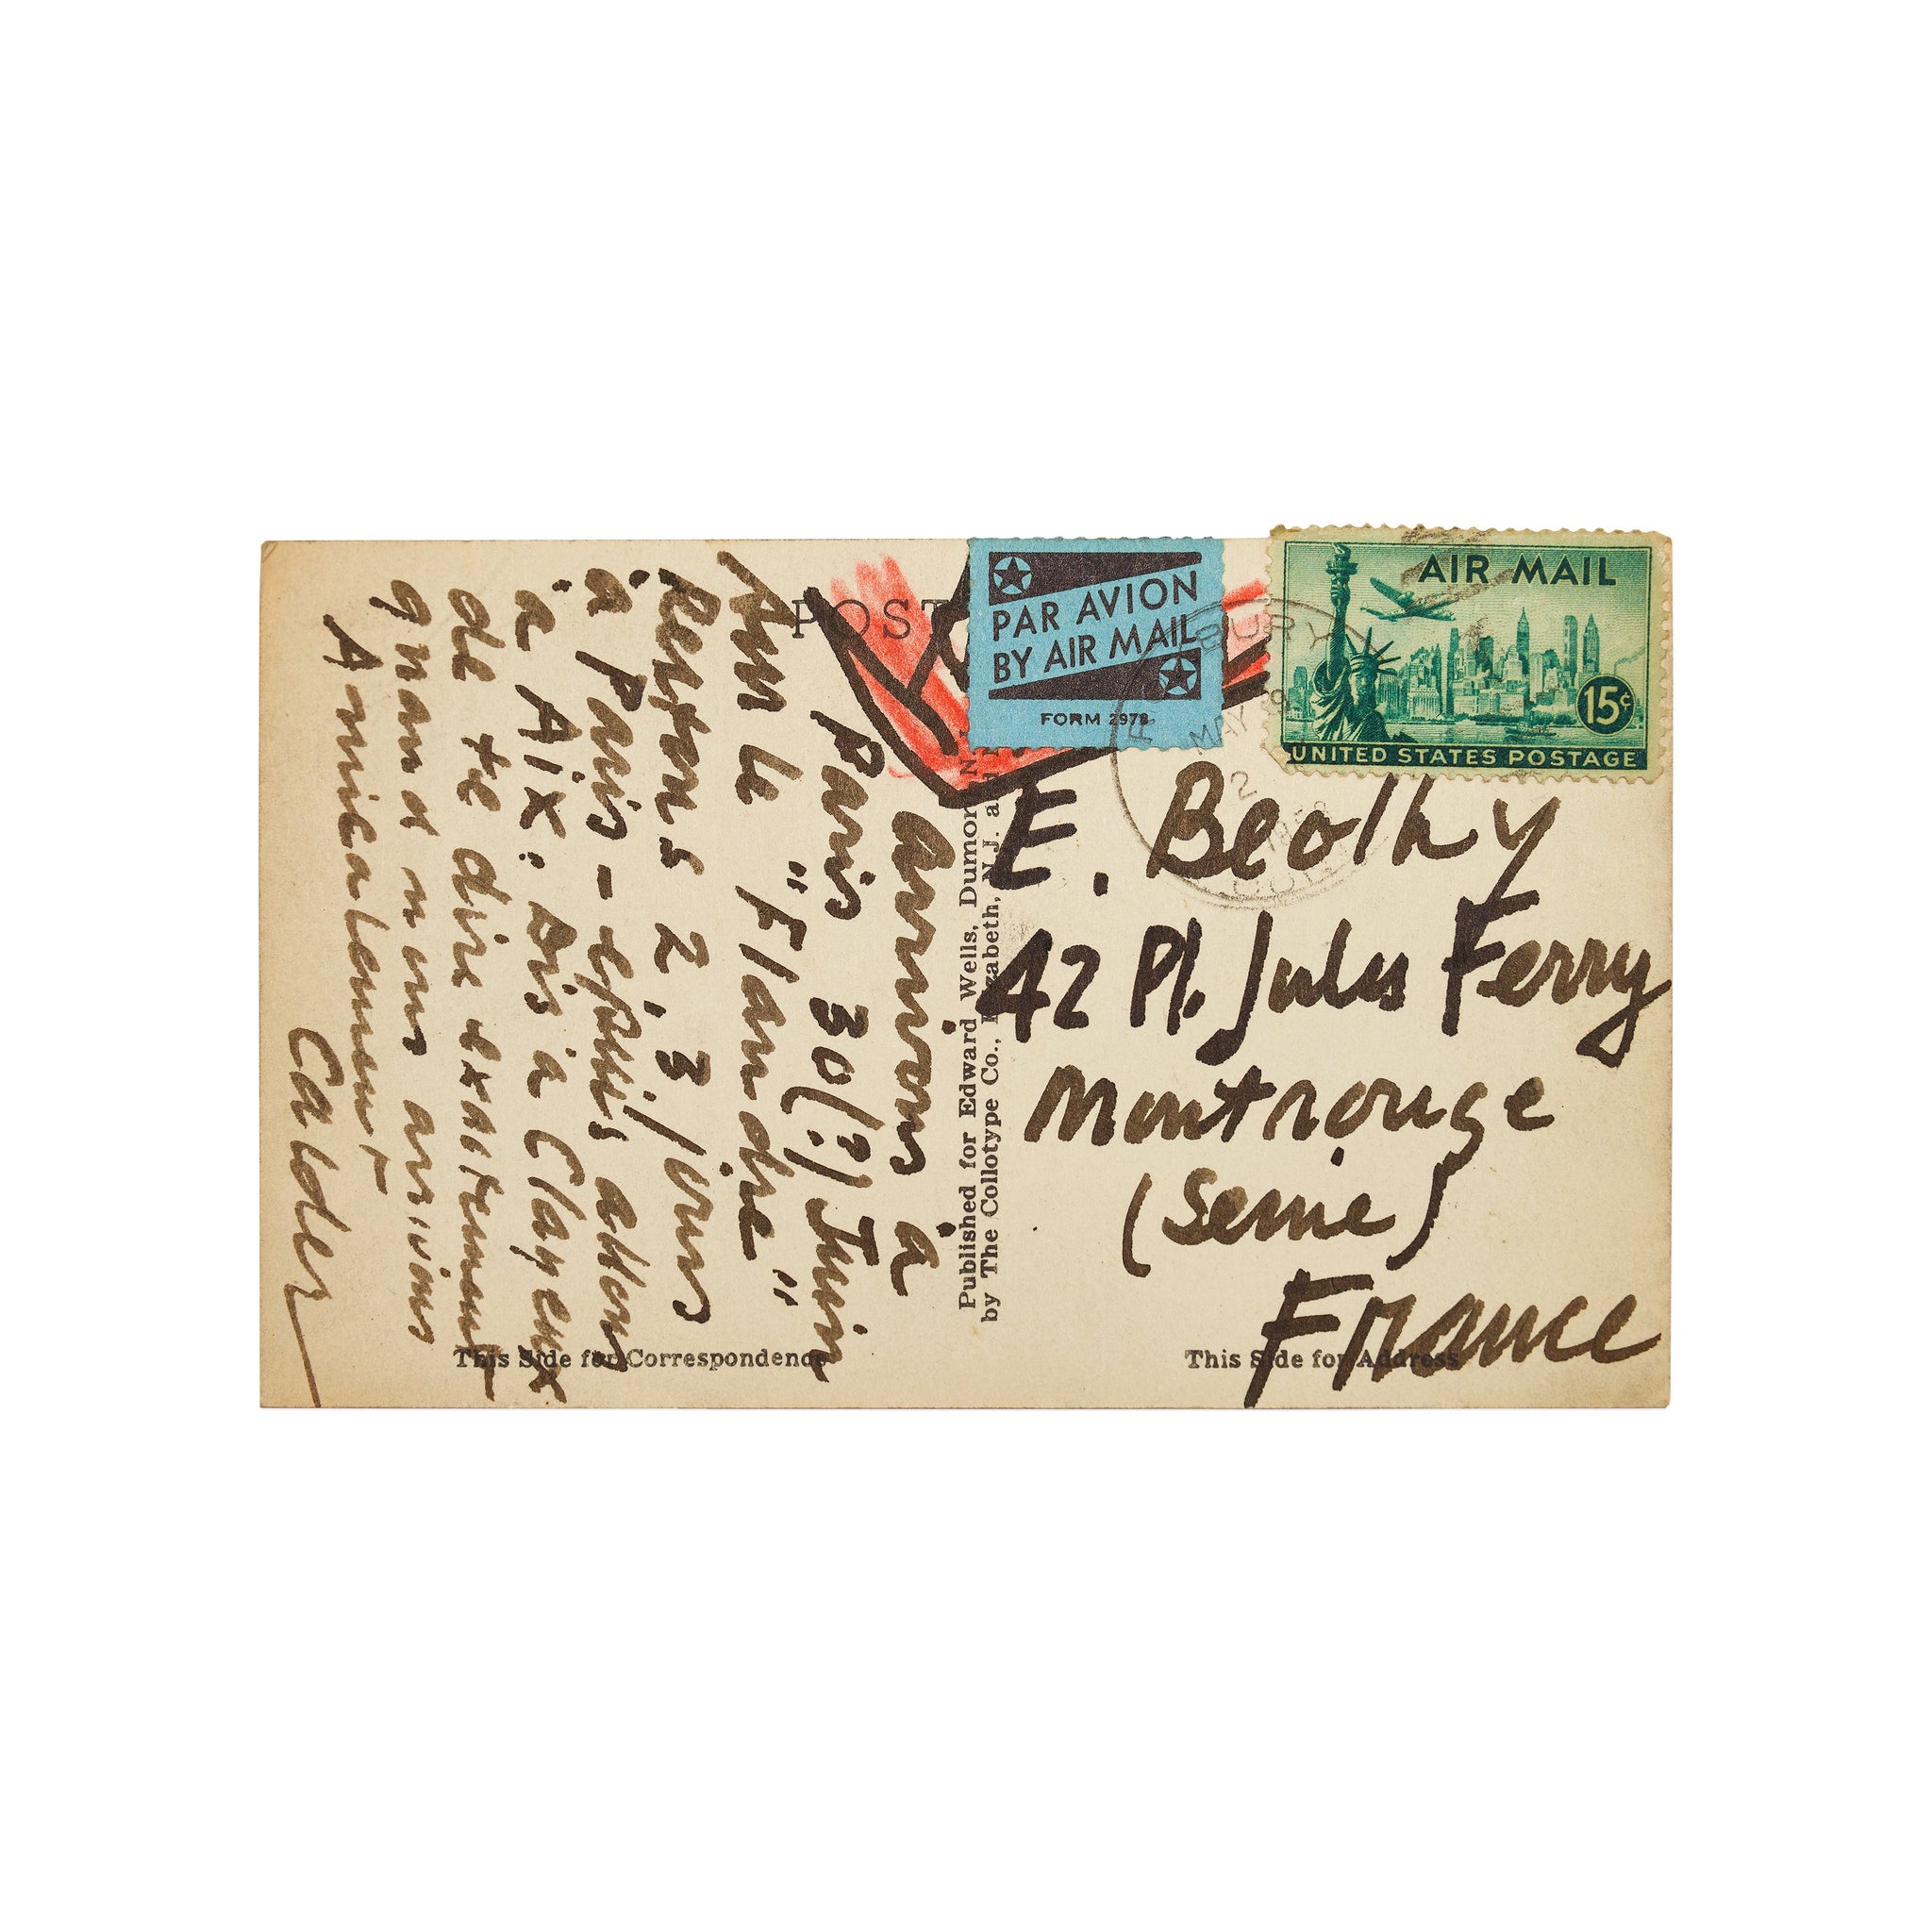 arrivons à
Paris 30(?) Juin
sur le "Flandre"
Restons 2, 3 jours
à Paris - et puis allons
à Aix. Dis à Clayeux
de te dire exactement
quand nous arrivons
Amicalement,
Calder
POST
Published for Edward Wells, Dumon
by The Collotype Co., Elizabeth, N.J. a
PAR AVION
BY AIR MAIL
FORM 2978
AIR MAIL
15¢
UNITED STATES POSTAGE
BURY
MAY
E. Beothy
42 Pl. Jules Ferry
Montrouge
(Seine)
France
This Side for Correspondence
This Side for Address